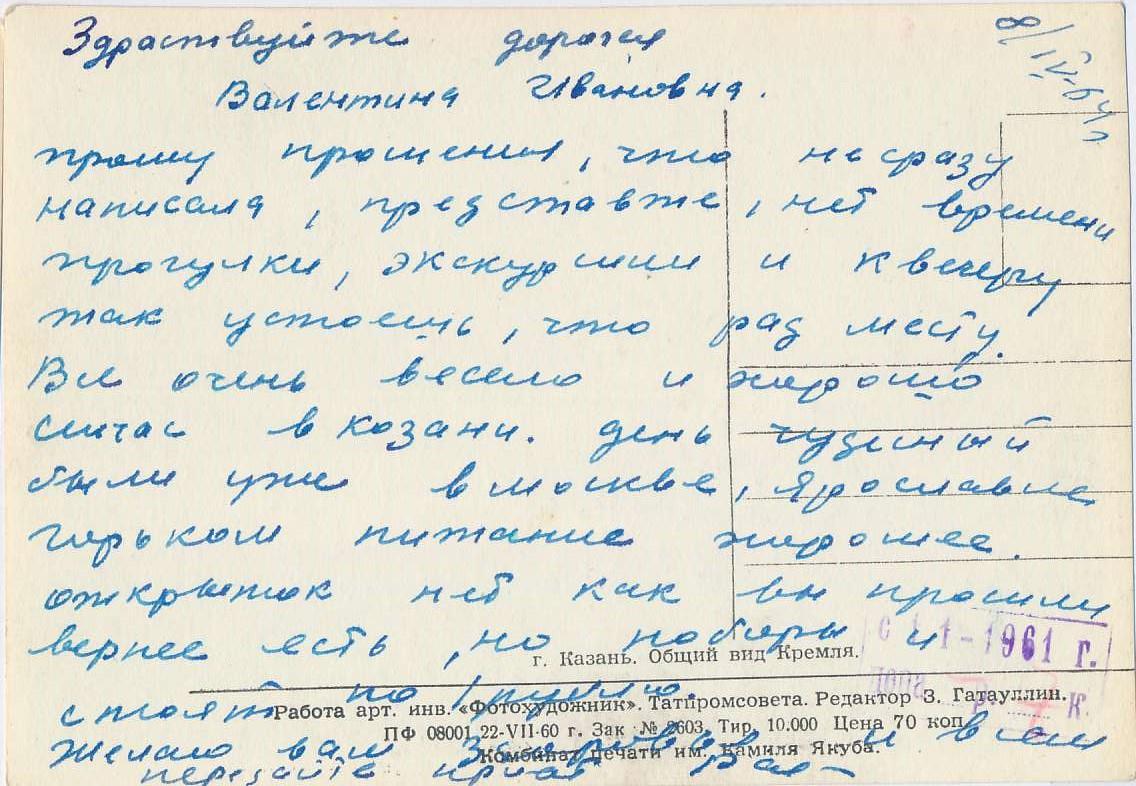 Здраствуйте дорогая
8/IV-64 г
Валентина Ивановна.
прошу прощения, что не сразу
написала, представте, нет времени
прогулки, экскурсии и к вечеру
так устоешь, что рад месту.
Все очень весело и хорошо
сичас в Козани. день чудсный
были уже в москве, Ярославле
горьком питание хорошее.
открыток нет как вы просили
вернее есть, но наборы и
г. Казань. Общий вид Кремля.
с 1 1-1961 г.
цена 7 к
стоят по 1 рублю.
Работа арт. инв. «Фотохудожник». Татпромсовета. Редактор З. Гатауллин.
ПФ 08001 22-VII-60 г. Зак № 2603. Тир. 10.000 Цена 70 коп
Комбинат печати им. Камиля Якуба.
желаю вам и всем
передайте привет